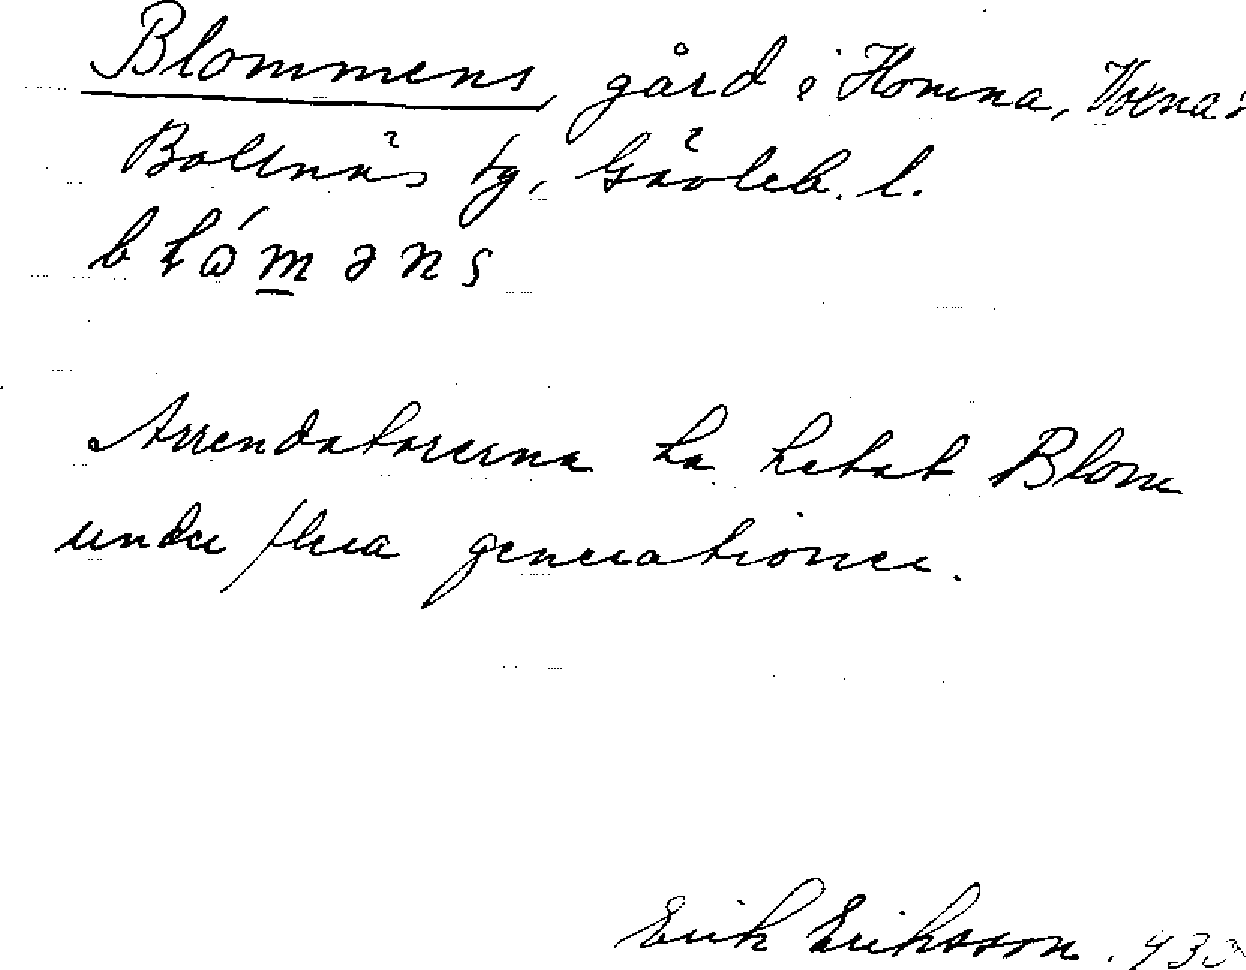 Blommens, gård i Homna, Voxna s
Bollnäs tg, Gävleb. l.
blɷ́mǝns
Arrendatorerna ha hetat Blom
under flera generationer.
Erik Eriksson.